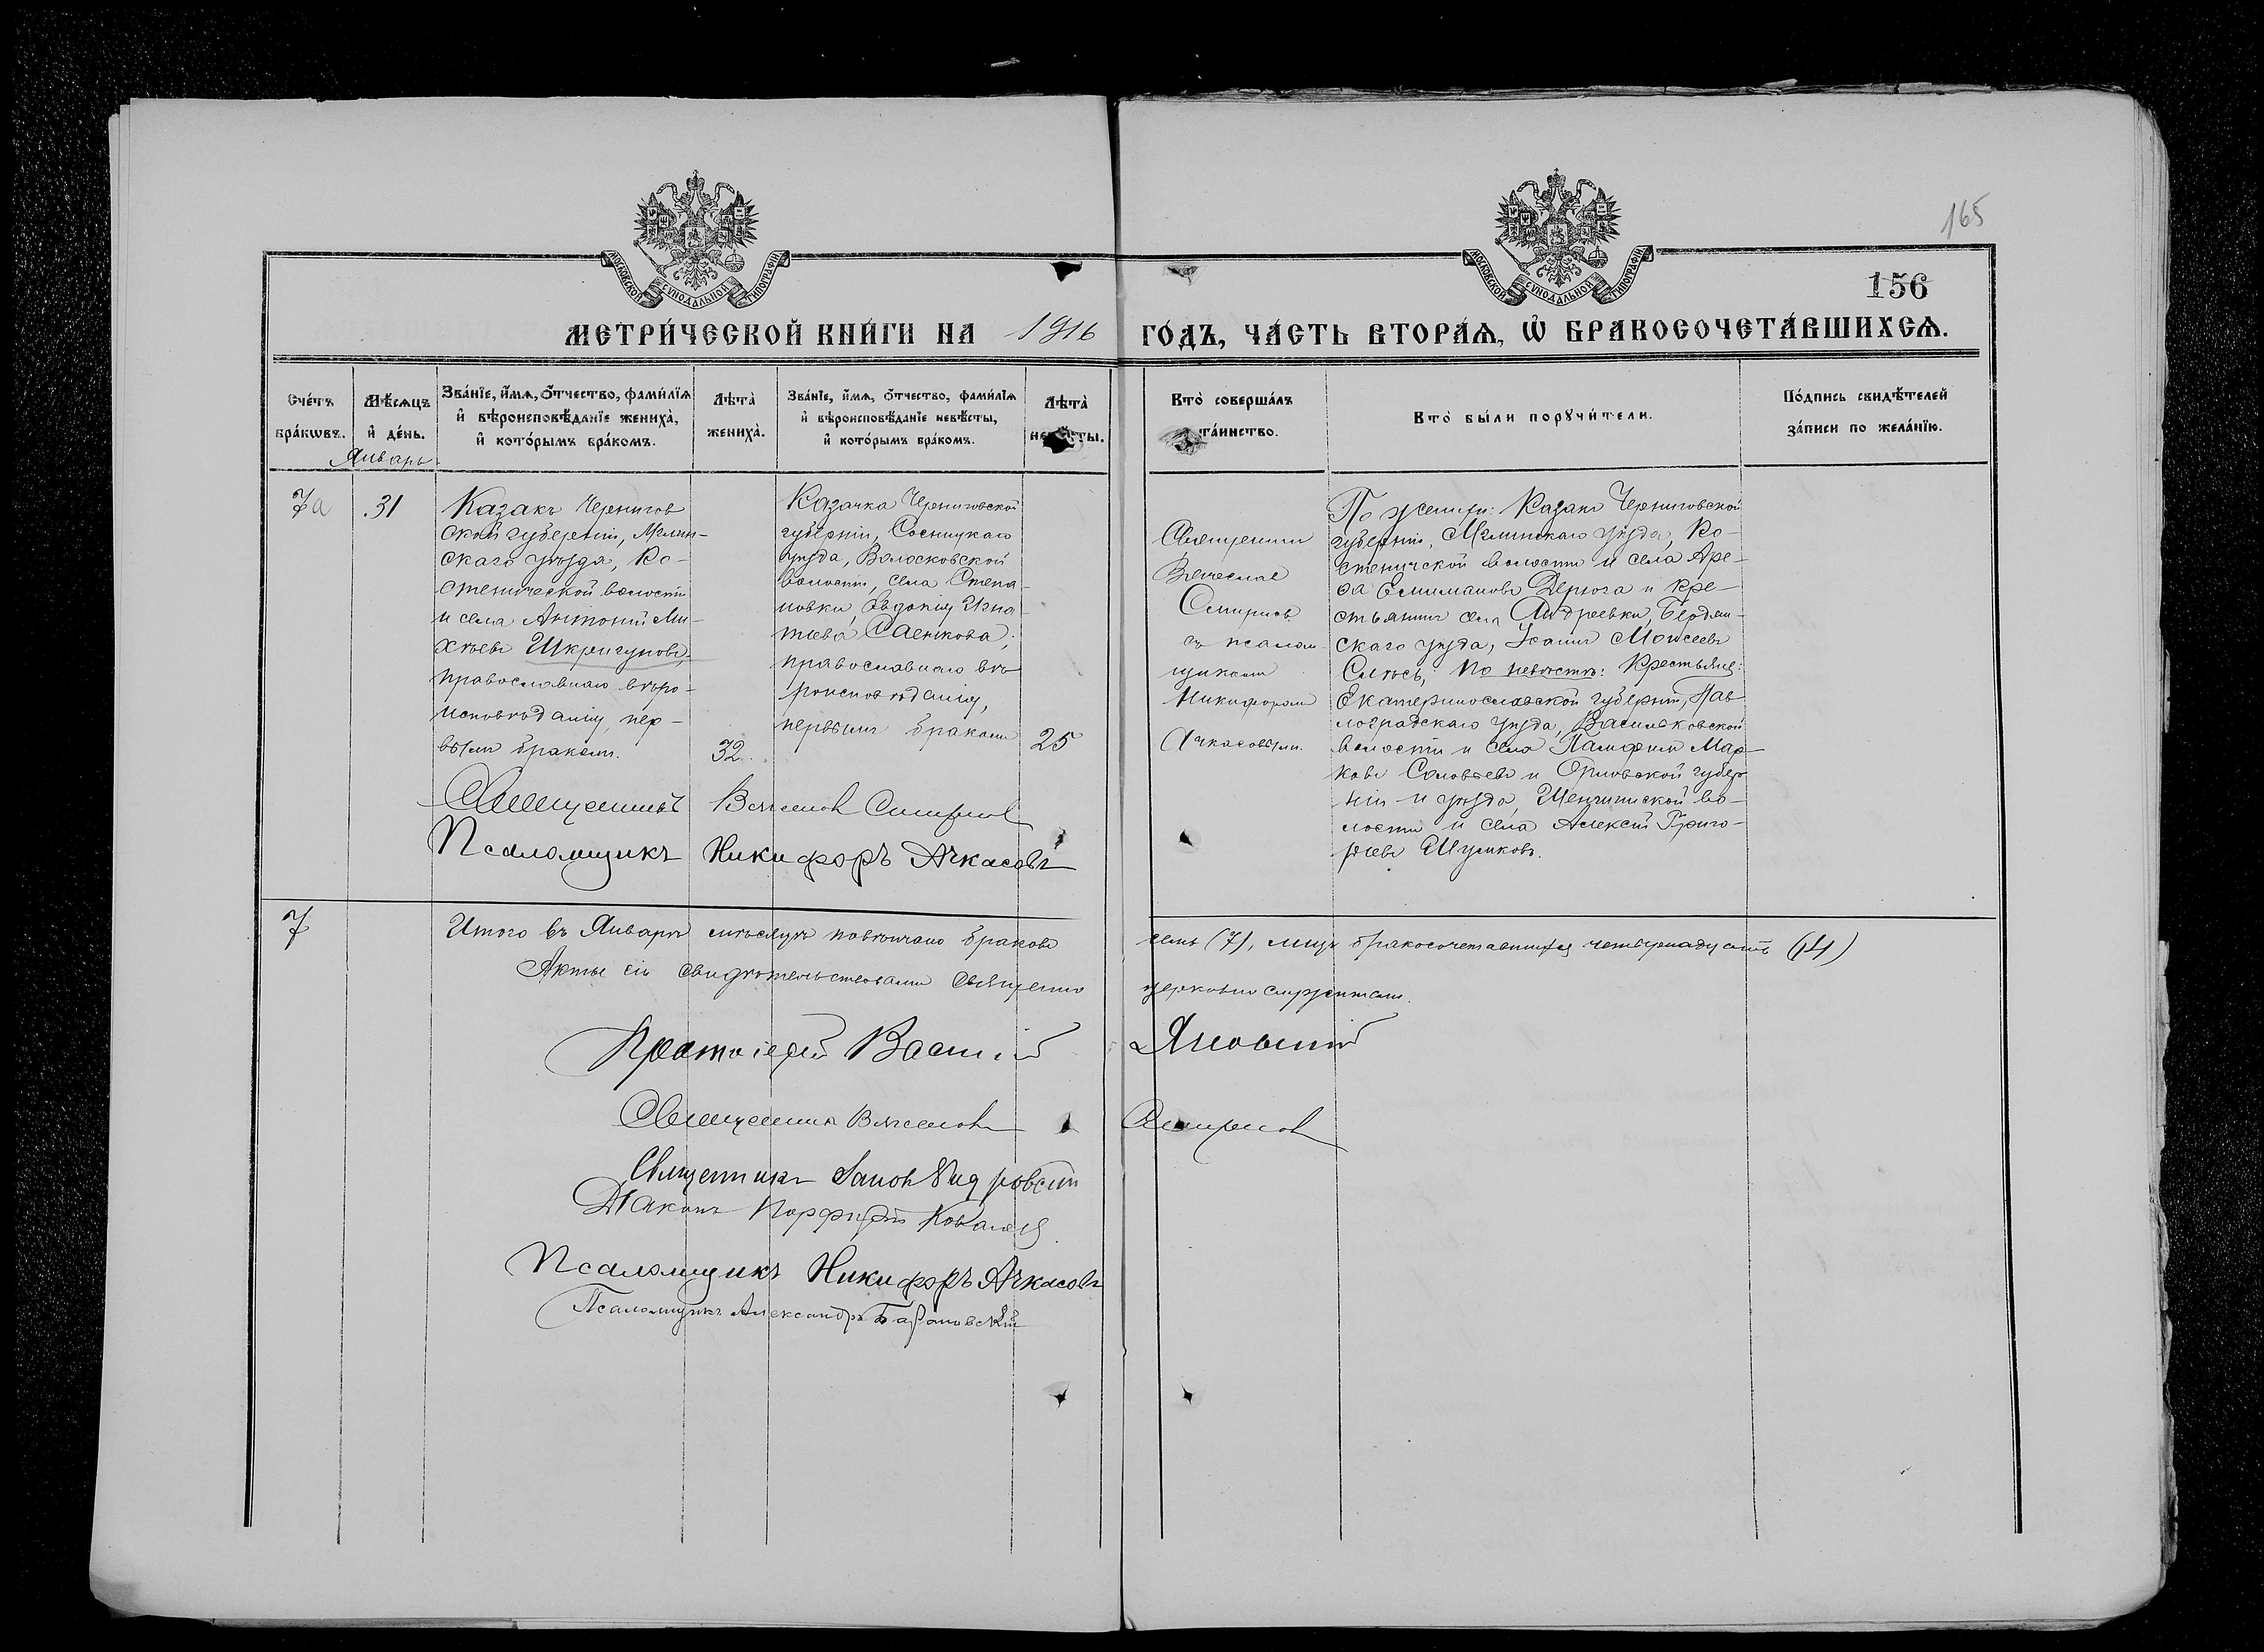 165
МОСКОВСКОЙ СѴНОДАЛЬНОЙ ТИПОГРАФІИ
МОСКОВСКОЙ СѴНОДАЛЬНОЙ ТИПОГРАФІИ
156
МЕТРИ́ЧЕСКОЙ КНИ́ГИ НА 1916 ГО́ДЪ, ЧА́СТЬ ВТОРА́Ѧ, Ѽ БРАКОСОЧЕТА́ВШИХСѦ.
Сче́тъ бра́кѡвъ.
Мѣ́сѧцъ и҆ де́нь.
Зва́нїе, и҆́мѧ, ѻ҆́тчество, фами́лїѧ
и҆ вѣроисповѣ́данїе жениха̀,
и҆ кото́рымъ бра́комъ.
Лѣ́та жениха̀.
Зва́нїе, и҆́мѧ, ѻ҆́тчество, фами́лїѧ
и҆ вѣроисповѣ́данїе невѣ́сты,
и҆ кото́рымъ бра́комъ.
Лѣ́та невѣ́сты.
Кто̀ соверша́лъ та́инство.
Кто̀ бы́ли порꙋчи́тели.
По́дпись свидѣ́телей
за́писи по жела́нїю.
Январь
7а
31
Казакъ Чернигов
ской губерніи, Мглин-
скаго уѣзда, Ко-
стенической волости
и села Антоній Ми-
хѣевъ Шкригуновъ,
православнаго вѣро-
исповѣданія, пер-
вымъ бракомъ.
32.
Казачка Черниговской
губерніи, Сосницкаго
уѣзда, Волосковской
волости, села Степа-
новки, Евдокія Игна-
тіева Саенкова,
православнаго вѣ-
роисповѣданія,
первымъ бракомъ
25
Священник
Вячеслав
Смирнов
съ псалом-
щиком
Никифором
Ачкасовым.
По женихѣ: Казакъ Черниговской
губерніи, Мглинскаго уѣзда, Ко-
стенической волости и села Аре-
фа Еммануиловъ Дерюга и кре-
стьянинъ села Андреевки, Бердян-
скаго уѣзда, Іоаннъ Моисеевъ
по невѣстѣ: Крестьяне:
Екатеринославской губерніи, Пав-
лоградскаго уѣзда, Васильковской
волости и села Памфилъ Мар-
ковъ Соловьевъ и Орловской губер
ніи и уѣзда, волости и села Алексій Григо-
рьевъ Шумиковъ.
Священникъ Вячеслав Смирнов
Псаломщикъ Никифоръ Ачкасовъ
7
Итого въ Январѣ мѣсяцѣ повѣнчано браковъ семь (7), лицъ бракосочетавшихся четырнадцать (14)
Акты сіи свидѣтельствовали священно церковно служители.
Протоіерей Василій Яновскій
Священникъ Вячеслав Смирнов
Священникъ
Діаконъ Порфирій Ковалев
Псаломщикъ Никифоръ Ачкасовъ
Псаломщикъ Александръ Барановскій